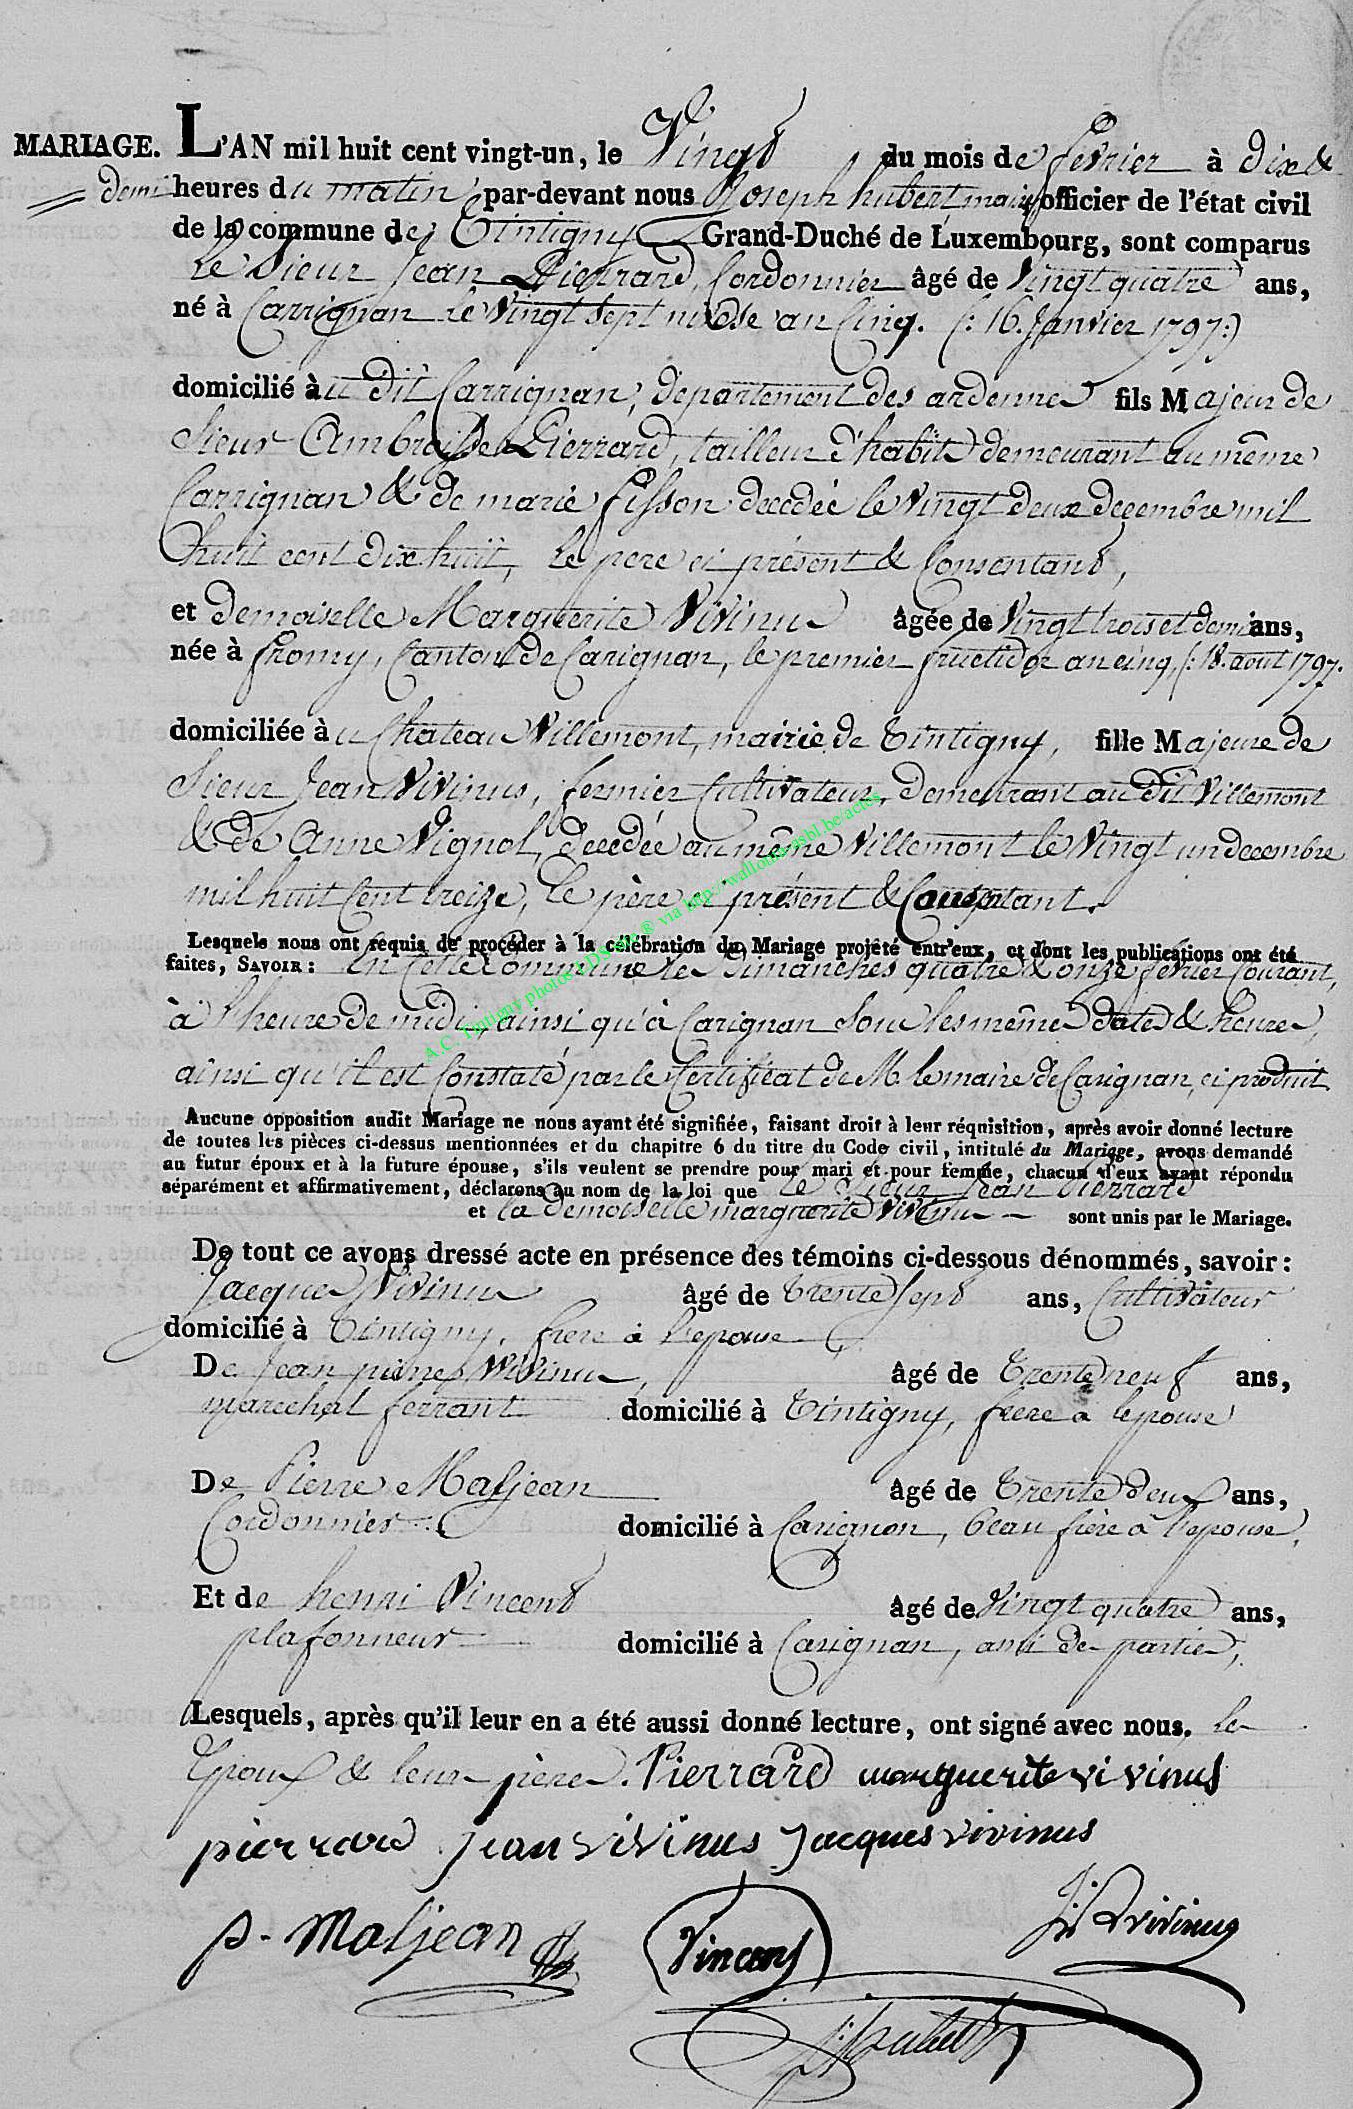 MARIAGE. L'AN mil huit cent vingt-un, le Vingt du mois de fevrier à dix &
demi heures du matin par-devant nous Joseph hubert maire officier de l'état civil
de la commune de Tintigny Grand-Duché de Luxembourg, sont comparus
Le Sieur Jean Pierrard, Cordonnier âgé de Vingt quatre ans,
né à Carrignan le Vingt sept nivose an Cinq. (: 16. Janvier 1797:)
domicilié àu dit Carrignan, departement des ardennes fils Majeur de
Sieur Ambroisse Pierrard, tailleur d'habits demeurant au même
Carrignan & de marie fisson decedée le Vingt deux decembre mil
huit cent dix huit, le pere ci présent & Consentant,
et demoiselle Marguerite Vivinus âgée de Vingt trois et demi ans,
née à fromy, Canton de Carignan, le premier fructidor an cinq, (: 18. aout 1797.
domiciliée àu Chateau Villemont, mairie de Tintigny, fille Majeure de
Sieur Jean Vivinus, fermier Cultivateur, demeurant au dit Villemont
& de Anne Vignol, decedée au même Villemont le Vingt un decembre
mil huit Cent treize, le père ci présent & Consentant.
Lesquels nous ont requis de procéder à la célébration du Mariage projeté entr'eux, et dont les publications ont été
faites, SAVOIR : En Cette Commune les Dimanches quatre & onze fevrier Courant,
à l'heure de midi, ainsi qu'à Carignan Sous les mêmes dates & heures,
ainsi qu'il est Constaté par le Certificat de M. le maire de Carignan, ci produit
Aucune opposition audit Mariage ne nous ayant été signifiée, faisant droit à leur réquisition, après avoir donné lecture
de toutes les pièces ci-dessus mentionnées et du chapitre 6 du titre du Code civil, intitulé du Mariage, avons demandé
au futur époux et à la future épouse, s'ils veulent se prendre pour mari et pour femme, chacun d'eux ayant répondu
séparément et affirmativement, déclarons au nom de la loi que le Sieur Jean Pierrard
et la demoiselle marguerite Vivinus sont unis par le Mariage.
De tout ce avons dressé acte en présence des témoins ci-dessous dénommés, savoir :
Jacques Vivinus âgé de Trente sept ans, Cultivateur
domicilié à Tintigny, frere à l'epouse
De Jean pierre Vivinus, âgé de Trente neuf ans,
marechal ferrant domicilié à Tintigny, frere a lepouse
De Pierre Maljean âgé de Trente deux ans,
Cordonnier domicilié à Carignan, beau frère à l'epouse,
Et de henri Vincent âgé de Vingt quatre ans,
plafonneur domicilié à Carignan, ami de partie,
Lesquels, après qu'il leur en a été aussi donné lecture, ont signé avec nous. les
Epoux & leurs pères. Pierrard marguerite vivinus
pierrard Jean vivinus Jacques vivinus
p. Maljean Vincent J: P vivinus
J: hubert
A.C. Tintigny photos LDS site ® via http://wallonia-asbl.be/actes